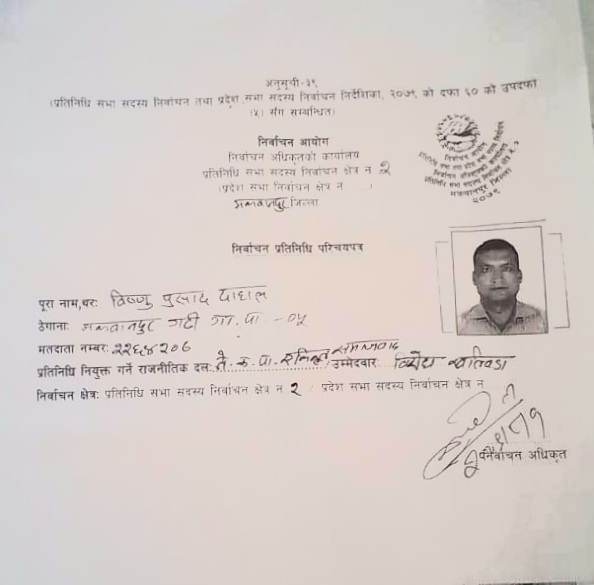 अनुसूची-३९
(प्रतिनिधि सभा सदस्य निर्वाचन तथा प्रदेश सभा सदस्य निर्वाचन निर्देशिका, २०७९ को दफा ६० को उपदफा
(५) सँग सम्बन्धित)
निर्वाचन आयोग
निर्वाचन अधिकृतको कार्यालय
प्रतिनिधि सभा सदस्य निर्वाचन क्षेत्र नं २
(प्रदेश सभा निर्वाचन क्षेत्र नं )
मकवानपुर जिल्ला
निर्वाचन आयोग
मकवानपुर जिल्ला
२०७९
निर्वाचन प्रतिनिधि परिचयपत्र
पूरा नाम,थरः विष्णु प्रसाद दाहाल
ठेगानाः मकवानपुर गढी गा.पा -०५
मतदाता नम्बरः २२६४२०६
प्रतिनिधि नियुक्त गर्ने राजनीतिक दलः ने.क.पा. एकीकृत समाजवादी उम्मेदवारः विरोध खतिवडा
निर्वाचन क्षेत्रः प्रतिनिधि सभा सदस्य निर्वाचन क्षेत्र नं २ / प्रदेश सभा सदस्य निर्वाचन क्षेत्र नं
निर्वाचन अधिकृत